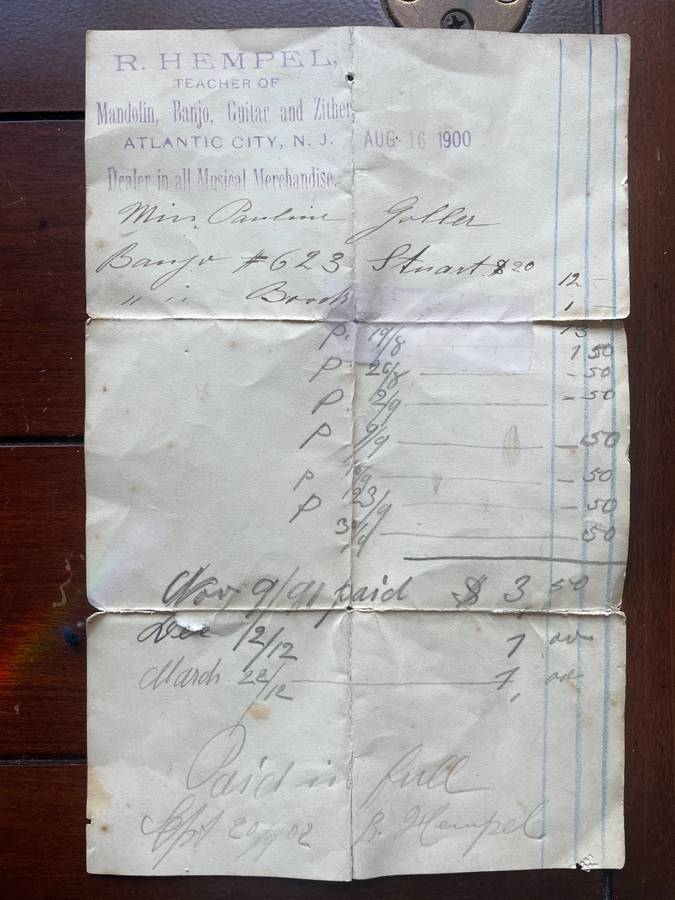 R. HEMPEL,
TEACHER OF
Mandolin, Banjo, Guitar and Zither,
ATLANTIC CITY, N. J. AUG 16 1900
Dealer in all Musical Merchandise.
Miss Pauline Goller
Banjo #623 Stuart $20 12 —
" " Book 1 —
13
P. 19/8 1 50
P 26/8 — 50
P 2/9 — 50
P 9/9 — 50
P 16/9 — 50
P 23/9 — 50
30/9 50
Nov 9/9 paid $ 3 50
Dec 12/12 1 00
March 22/12 1 00
Paid in full
Sept 20 02 R. Hempel